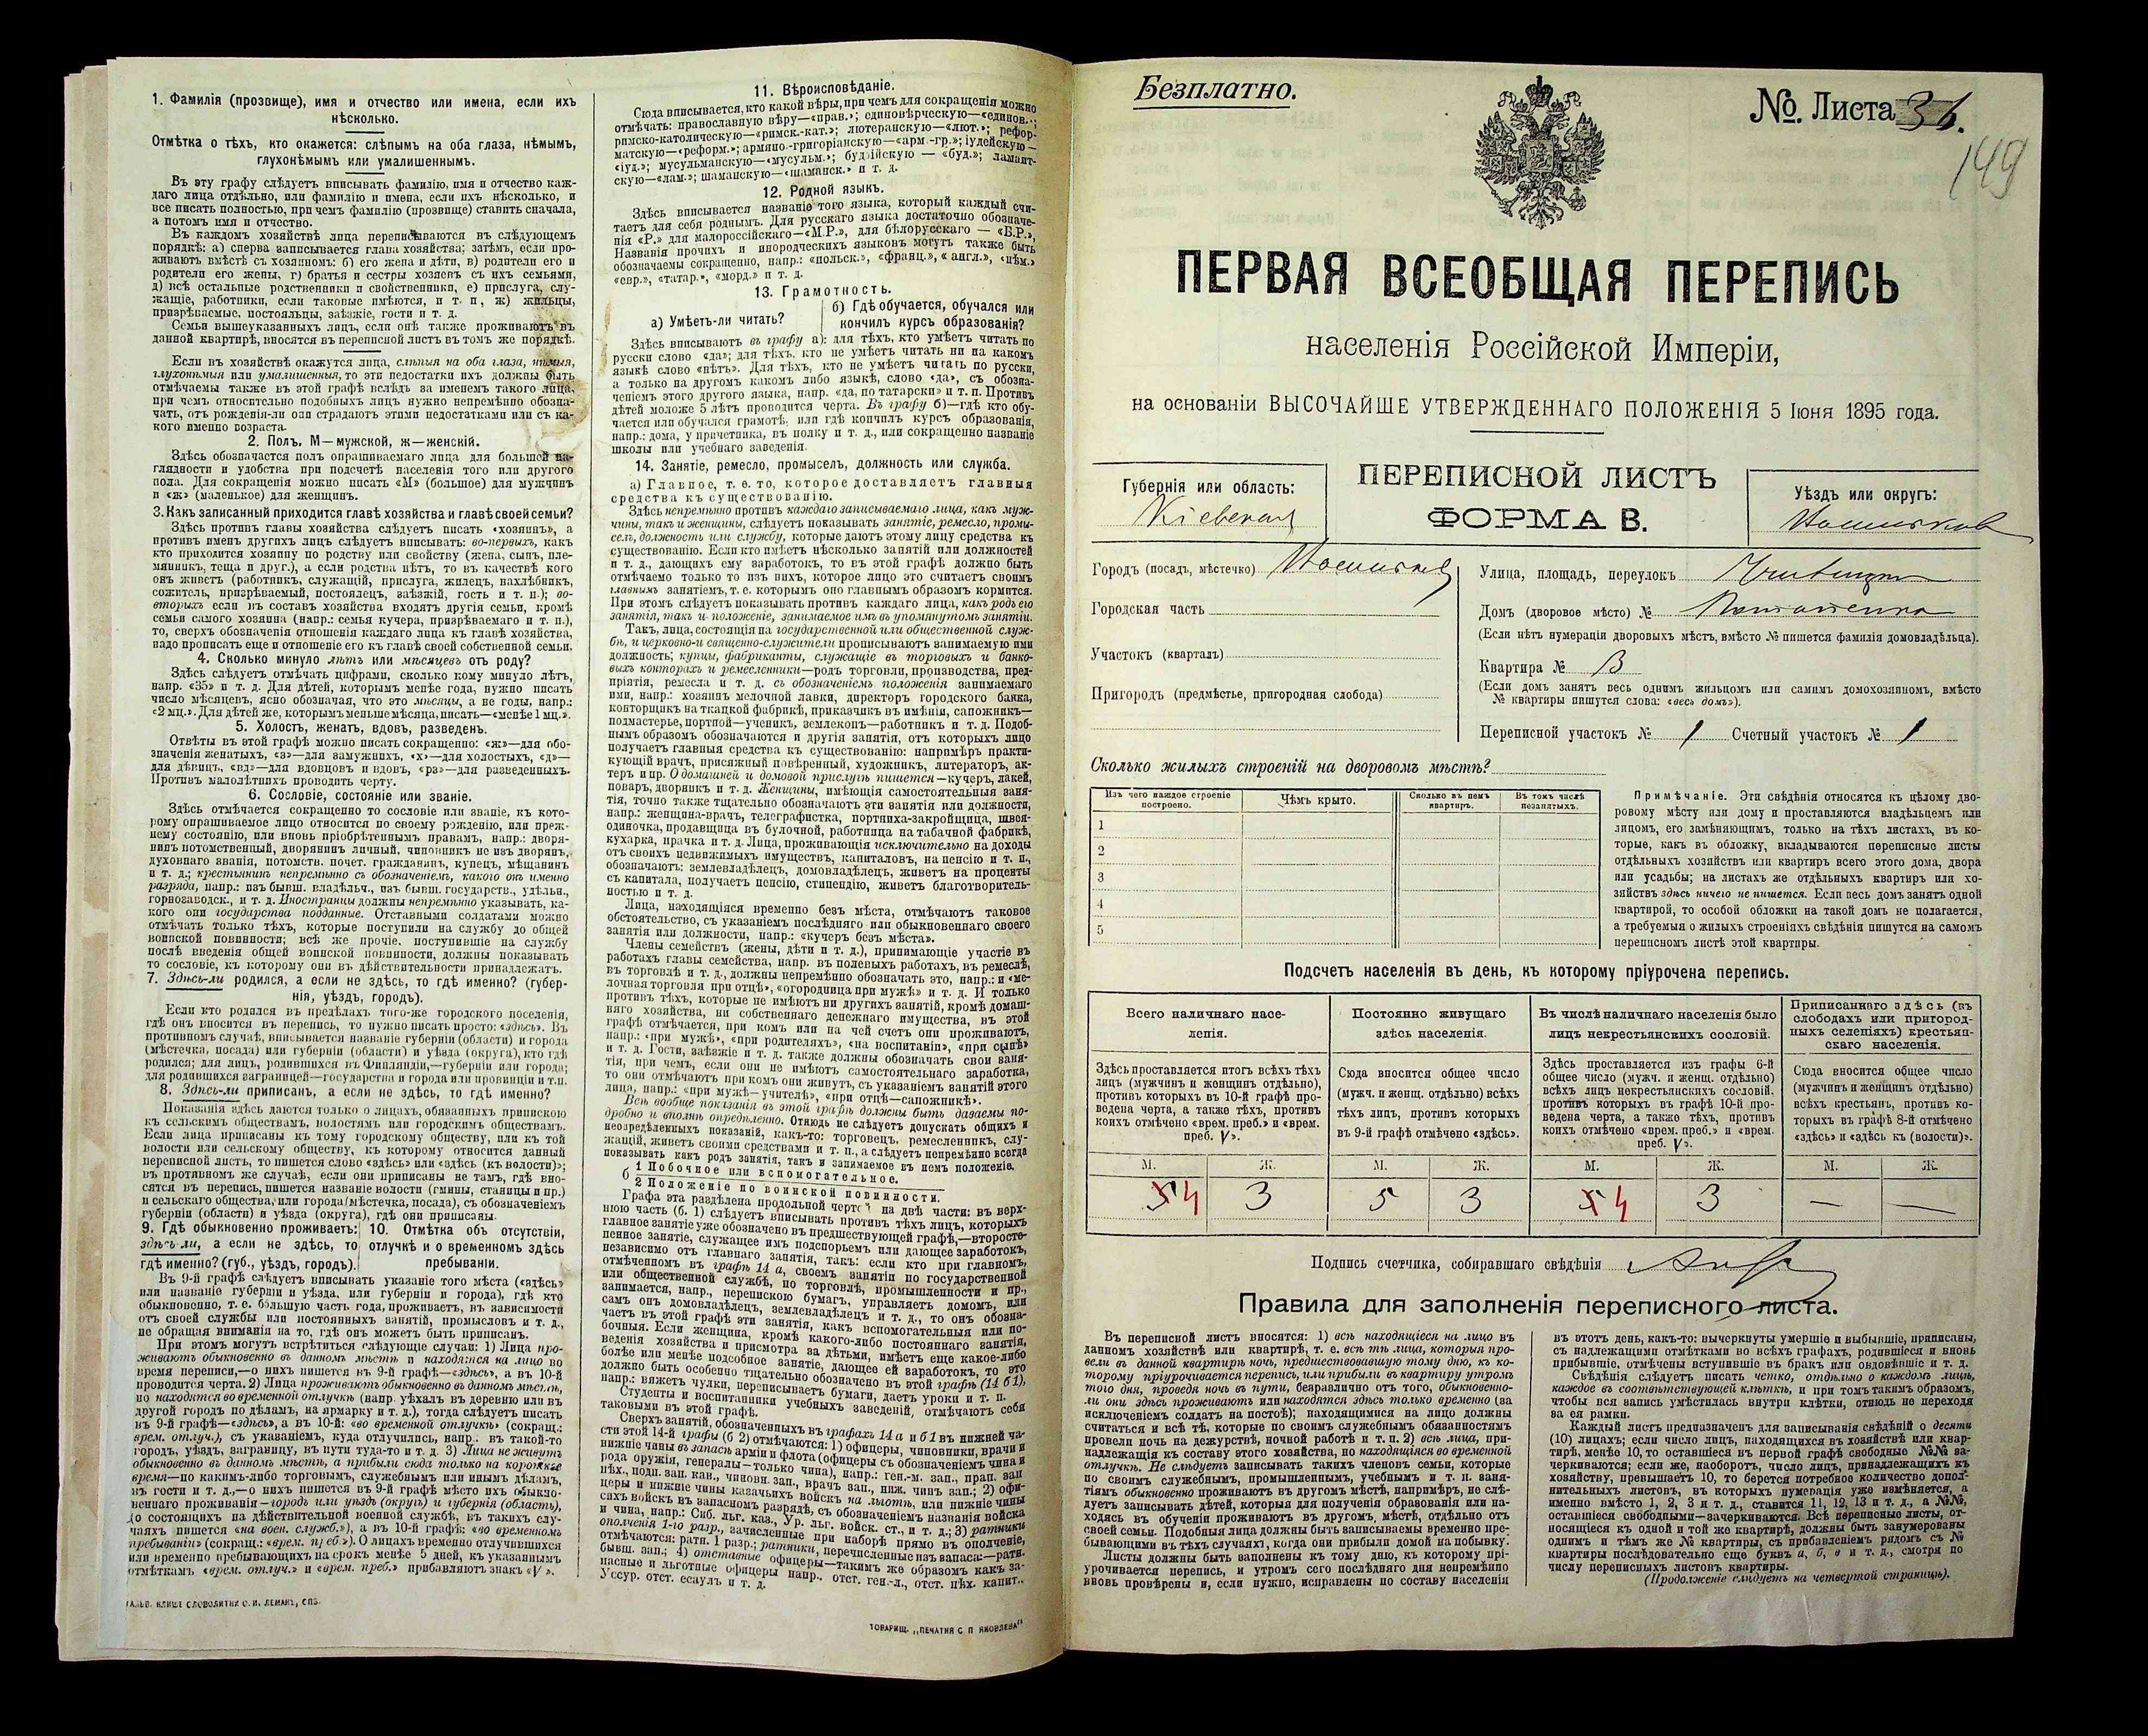 1. Фамилія (прозвище), имя и отчество или имена, если ихъ
нѣсколько.
Отмѣтка о тѣхъ, кто окажется: слѣпымъ на оба глаза, нѣмымъ,
глухонѣмымъ или умалишеннымъ.
Въ эту графу слѣдуетъ вписывать фамилію, имя и отчество каж-
даго лица отдѣльно, или фамилію и имена, если ихъ нѣсколько, и
все писать полностью, при чемъ фамилію (прозвище) ставить сначала,
а потомъ имя и отчество.
Въ каждомъ хозяйствѣ лица переписываются въ слѣдующемъ
порядкѣ: а) сперва записывается глава хозяйства; затѣмъ, если про-
живаютъ вмѣстѣ съ хозяиномъ: б) его жена и дѣти, в) родители его и
родители его жены, г) братья и сестры хозяевъ съ ихъ семьями,
д) всѣ остальные родственники и свойственники, е) прислуга, слу-
жащіе, работники, если таковые имѣются, и т. п., ж) жильцы,
призрѣваемые, постояльцы, заѣзжіе, гости и т. п.
Семьи вышеуказанныхъ лицъ, если онѣ также проживаютъ въ
данной квартирѣ, вносятся въ переписной листъ въ томъ же порядкѣ.
Если въ хозяйствѣ окажутся лица, слѣпыя на оба глаза, нѣмыя,
глухонѣмыя или умалишенныя, то эти недостатки ихъ должны быть
отмѣчаемы также въ этой графѣ вслѣдъ за именемъ такого лица,
при чемъ относительно подобныхъ лицъ нужно непремѣнно обозна-
чать, отъ рожденія-ли они страдаютъ этими недостатками или съ ка-
кого именно возраста.
2. Полъ. М—мужской, ж—женскій.
Здѣсь обозначается полъ опрашиваемаго лица для большей на-
глядности и удобства при подсчетѣ населенія того или другого
пола. Для сокращенія можно писать «М» (большое) для мужчинъ
и «ж» (маленькое) для женщинъ.
3. Какъ записанный приходится главѣ хозяйства и главѣ своей семьи?
Здѣсь противъ главы хозяйства слѣдуетъ писать «хозяинъ», а
противъ именъ другихъ лицъ слѣдуетъ вписывать: во-первыхъ, какъ
кто приходится хозяину по родству или свойству (жена, сынъ, пле-
мянникъ, теща и друг.), а если родства нѣтъ, то въ качествѣ кого
онъ живетъ (работникъ, служащій, прислуга, жилецъ, нахлѣбникъ,
сожитель, призрѣваемый, постоялецъ, заѣзжій, гость и т. п.); во-
вторыхъ если въ составъ хозяйства входятъ другія семьи, кромѣ
семьи самого хозяина (напр.: семья кучера, призрѣваемаго и т. п.),
то, сверхъ обозначенія отношенія каждаго лица къ главѣ хозяйства,
надо прописать еще и отношеніе его къ главѣ своей собственной семьи.
4. Сколько минуло лѣтъ или мѣсяцевъ отъ роду?
Здѣсь слѣдуетъ отмѣчать цифрами, сколько кому минуло лѣтъ,
напр. «35» и т. д. Для дѣтей, которымъ менѣе года, нужно писать
число мѣсяцевъ, ясно обозначая, что это мѣсяцы, а не годы, напр.:
«2 мц.». Для дѣтей же, которымъ меньше мѣсяца, писать—«менѣе 1 мц.».
5. Холостъ, женатъ, вдовъ, разведенъ.
Отвѣты въ этой графѣ можно писать сокращенно: «ж»—для обо-
значенія женатыхъ, «з»—для замужнихъ, «х»—для холостыхъ, «д»—
для дѣвицъ, «вд»—для вдовцовъ и вдовъ, «рз»—для разведенныхъ.
Противъ малолѣтнихъ проводить черту.
6. Сословіе, состояніе или званіе.
Здѣсь отмѣчается сокращенно то сословіе или званіе, къ кото-
рому опрашиваемое лицо относится по своему рожденію, или преж-
нему состоянію, или вновь пріобрѣтеннымъ правамъ, напр.: дворя-
нинъ потомственный, дворянинъ личный, чиновникъ не изъ дворянъ,
духовнаго званія, потомств. почет. гражданинъ, купецъ, мѣщанинъ
и т. д.; крестьянинъ непремѣнно съ обозначеніемъ, какого онъ именно
разряда, напр.: изъ бывш. владѣльч., изъ бывш. государств., удѣльн.,
горнозаводск., и т. д. Иностранцы должны непремѣнно указывать, ка-
кого они государства подданные. Отставными солдатами можно
отмѣчать только тѣхъ, которые поступили на службу до общей
воинской повинности; всѣ же прочіе, поступившіе на службу
послѣ введенія общей воинской повинности, должны показывать
то сословіе, къ которому они въ дѣйствительности принадлежатъ.
7. Здѣсь-ли родился, а если не здѣсь, то гдѣ именно? (губер-
нія, уѣздъ, городъ).
Если кто родился въ предѣлахъ того-же городского поселенія,
гдѣ онъ вносится въ перепись, то нужно писать просто: «здѣсь». Въ
противномъ случаѣ, вписывается названіе губерніи (области) и города
(мѣстечка, посада) или губерніи (области) и уѣзда (округа), кто гдѣ
родился; для лицъ, родившихся въ Финляндіи,—губерніи или города;
для родившихся заграницей—государства и города или провинціи и т.п.
8. Здѣсь-ли приписанъ, а если не здѣсь, то гдѣ именно?
Показанія здѣсь даются только о лицахъ, обязанныхъ припискою
къ сельскимъ обществамъ, волостямъ или городскимъ обществамъ.
Если лица приписаны къ тому городскому обществу, или къ той
волости или сельскому обществу, къ которому относится данный
переписной листъ, то пишется слово «здѣсь» или «здѣсь (къ волости)»;
въ противномъ же случаѣ, если они приписаны не тамъ, гдѣ вно-
сятся въ перепись, пишется названіе волости (гмины, станицы и пр.)
и сельскаго общества, или города (мѣстечка, посада), съ обозначеніемъ
губерніи (области) и уѣзда (округа), гдѣ они приписаны.
9. Гдѣ обыкновенно проживаетъ:
здѣсь-ли, а если не здѣсь, то
гдѣ именно? (губ., уѣздъ, городъ).
10. Отмѣтка объ отсутствіи,
отлучкѣ и о временномъ здѣсь
пребываніи.
Въ 9-й графѣ слѣдуетъ вписывать указаніе того мѣста («здѣсь»
или названіе губерніи и уѣзда, или губерніи и города), гдѣ кто
обыкновенно, т. е. большую часть года, проживаетъ, въ зависимости
отъ своей службы или постоянныхъ занятій, промысловъ и т. д.,
не обращая вниманія на то, гдѣ онъ можетъ быть приписанъ.
При этомъ могутъ встрѣтиться слѣдующіе случаи: 1) Лица про-
живаютъ обыкновенно въ данномъ мѣстѣ и находятся на лицо во
время переписи,—о нихъ пишется въ 9-й графѣ—«здѣсь», а въ 10-й
проводится черта. 2) Лица проживаютъ обыкновенно въ данномъ мѣстѣ,
но находятся во временной отлучкѣ (напр. уѣхалъ въ деревню или въ
другой городъ по дѣламъ, на ярмарку и т. д.), тогда слѣдуетъ писать
въ 9-й графѣ—«здѣсь», а въ 10-й: «во временной отлучкѣ» (сокращ.:
врем. отлуч.), съ указаніемъ, куда отлучились, напр. въ такой-то
городъ, уѣздъ, заграницу, въ пути туда-то и т. д. 3) Лица не живутъ
обыкновенно въ данномъ мѣстѣ, а прибыли сюда только на короткое
время—по какимъ-либо торговымъ, служебнымъ или инымъ дѣламъ,
въ гости и т. д.,—о нихъ пишется въ 9-й графѣ мѣсто ихъ обыкно-
веннаго проживанія—городъ или уѣздъ (округъ) и губернія (область),
(о состоящихъ на дѣйствительной военной службѣ, въ такихъ слу-
чаяхъ пишется «на воен. служб.»), а въ 10-й графѣ: «во временномъ
пребываніи» (сокращ.: «врем. преб.»). О лицахъ временно отлучившихся
или временно пребывающихъ на срокъ менѣе 5 дней, къ указаннымъ
отмѣткамъ «врем. отлуч.» и «врем. преб.» прибавляютъ знакъ «V».
11. Вѣроисповѣданіе.
Сюда вписывается, кто какой вѣры, при чемъ для сокращенія можно
отмѣчать: православную вѣру—«прав.»; единовѣрческую—«единов.»;
римско-католическую—«римск.-кат.»; лютеранскую—«лют.»; рефор-
матскую—«реформ.»; армяно-григоріанскую—«арм.-гр.»; іудейскую—
«іуд.»; мусульманскую—«мусульм.»; буддійскую — «буд.»; ламаит-
скую—«лам.»; шаманскую—«шаманск.» и т. д.
12. Родной языкъ.
Здѣсь вписывается названіе того языка, который каждый счи-
таетъ для себя роднымъ. Для русскаго языка достаточно обозначе-
нія «Р.» для малороссійскаго—«М.Р.», для бѣлорусскаго — «Б.Р.»,
Названія прочихъ и инородческихъ языковъ могутъ также быть
обозначаемы сокращенно, напр.: «польск.», «франц.», «англ.», «нѣм.»
«евр.», «татар.», «морд.» и т. д.
13. Грамотность.
а) Умѣетъ-ли читать?
б) Гдѣ обучается, обучался или
кончилъ курсъ образованія?
Здѣсь вписываютъ въ графу а): для тѣхъ, кто умѣетъ читать по
русски слово «да»; для тѣхъ, кто не умѣетъ читать ни на какомъ
языкѣ слово «нѣтъ». Для тѣхъ, кто не умѣетъ читать по русски,
а только на другомъ какомъ либо языкѣ, слово «да», съ обозна-
ченіемъ этого другого языка, напр. «да, по татарски» и т. п. Противъ
дѣтей моложе 5 лѣтъ проводится черта. Въ графу б)—гдѣ кто обу-
чается или обучался грамотѣ, или гдѣ кончилъ курсъ образованія,
напр.: дома, у причетника, въ полку и т. д., или сокращенно названіе
школы или учебнаго заведенія.
14. Занятіе, ремесло, промыселъ, должность или служба.
а) Главное, т. е. то, которое доставляетъ главныя
средства къ существованію.
Здѣсь непремѣнно противъ каждаго записываемаго лица, какъ муж-
чины, такъ и женщины, слѣдуетъ показывать занятіе, ремесло, промы-
селъ, должность или службу, которые даютъ этому лицу средства къ
существованію. Если кто имѣетъ нѣсколько занятій или должностей
и т. д., дающихъ ему заработокъ, то въ этой графѣ должно быть
отмѣчаемо только то изъ нихъ, которое лицо это считаетъ своимъ
главнымъ занятіемъ, т. е. которымъ оно главнымъ образомъ кормится.
При этомъ слѣдуетъ показывать противъ каждаго лица, какъ родъ его
занятія, такъ и положеніе, занимаемое имъ въ упомянутомъ занятіи.
Такъ, лица, состоящія на государственной или общественной служ-
бѣ, и церковно-и священно-служители прописываютъ занимаемую ими
должность; купцы, фабриканты, служащіе въ торговыхъ и банко-
выхъ конторахъ и ремесленники—родъ торговли, производства, пред-
пріятія, ремесла и т. д. съ обозначеніемъ положенія занимаемаго
ими, напр.: хозяинъ мелочной лавки, директоръ городского банка,
конторщикъ на ткацкой фабрикѣ, приказчикъ въ имѣніи, сапожникъ—
подмастерье, портной—ученикъ, землекопъ—работникъ и т. д. Подоб-
нымъ образомъ обозначаются и другія занятія, отъ которыхъ лицо
получаетъ главныя средства къ существованію: напримѣръ практи-
кующій врачъ, присяжный повѣренный, художникъ, литераторъ, ак-
теръ и пр. О домашней и домовой прислугѣ пишется—кучеръ, лакей,
поваръ, дворникъ и т. д. Женщины, имѣющія самостоятельныя заня-
тія, точно также тщательно обозначаютъ эти занятія или должности,
напр.: женщина-врачъ, телеграфистка, портниха-закройщица, швея-
одиночка, продавщица въ булочной, работница на табачной фабрикѣ,
кухарка, прачка и т. д. Лица, проживающія исключительно на доходы
отъ своихъ недвижимыхъ имуществъ, капиталовъ, на пенсію и т. п.,
обозначаютъ: землевладѣлецъ, домовладѣлецъ, живетъ на проценты
съ капитала, получаетъ пенсію, стипендію, живетъ благотворитель-
ностью и т. д.
Лица, находящіяся временно безъ мѣста, отмѣчаютъ таковое
обстоятельство, съ указаніемъ послѣдняго или обыкновеннаго своего
занятія или должности, напр.: «кучеръ безъ мѣста».
Члены семействъ (жены, дѣти и т. д.), принимающіе участіе въ
работахъ главы семейства, напр. въ полевыхъ работахъ, въ ремеслѣ,
въ торговлѣ и т. д., должны непремѣнно обозначать это, напр.: и «ме-
лочная торговля при отцѣ», «огородница при мужѣ» и т. д. И только
противъ тѣхъ, которые не имѣютъ ни другихъ занятій, кромѣ домаш-
няго хозяйства, ни собственнаго денежнаго имущества, въ этой
графѣ отмѣчается, при комъ или на чей счетъ они проживаютъ,
напр.: «при мужѣ», «при родителяхъ», «на воспитаніи», «при сынѣ»
и т. д. Гости, заѣзжіе и т. д. также должны обозначать свои заня-
тія, при чемъ, если они не имѣютъ самостоятельнаго заработка,
то они отмѣчаютъ при комъ они живутъ, съ указаніемъ занятій этого
лица, напр.: «при мужѣ—учителѣ», «при отцѣ—сапожникѣ».
Всѣ вообще показанія въ этой графѣ должны быть даваемы по-
дробно и вполнѣ опредѣленно. Отнюдь не слѣдуетъ допускать общихъ и
неопредѣленныхъ показаній, какъ-то: торговецъ, ремесленникъ, слу-
жащій, живетъ своими средствами и т. п., а слѣдуетъ непремѣнно всегда
показывать какъ родъ занятія, такъ и занимаемое въ немъ положеніе.
б 1 Побочное или вспомогательное.
2 Положеніе по воинской повинности.
Графа эта раздѣлена продольной чертой на двѣ части: въ верх-
нюю часть (б. 1) слѣдуетъ вписывать противъ тѣхъ лицъ, которыхъ
главное занятіе уже обозначено въ предшествующей графѣ,—второсте-
пенное занятіе, служащее имъ подспорьемъ или дающее заработокъ,
независимо отъ главнаго занятія, такъ: если кто при главномъ,
отмѣченномъ въ графѣ 14 а, своемъ занятіи по государственной
или общественной службѣ, по торговлѣ, промышленности и пр.,
занимается, напр., перепискою бумагъ, управляетъ домомъ, или
самъ онъ домовладѣлецъ, землевладѣлецъ и т. д., то онъ обозна-
чаетъ въ этой графѣ эти занятія, какъ вспомогательныя или по-
бочныя. Если женщина, кромѣ какого-либо постояннаго занятія,
веденія хозяйства и присмотра за дѣтьми, имѣетъ еще какое-либо
болѣе или менѣе подсобное занятіе, дающее ей заработокъ, то это
должно быть особенно тщательно обозначено въ этой графѣ (14 б 1),
напр.: вяжетъ чулки, переписываетъ бумаги, даетъ уроки и т. п.
Студенты и воспитанники учебныхъ заведеній, отмѣчаютъ себя
таковыми въ этой графѣ.
Сверхъ занятій, обозначенныхъ въ графахъ 14 а и б 1 въ нижней ча-
сти этой 14-й графы (б 2) отмѣчаются: 1) офицеры, чиновники, врачи и
нижніе чины въ запасѣ арміи и флота (офицеры съ обозначеніемъ чина и
рода оружія, генералы—только чина), напр.: ген.-м. зап., прап. зап
пѣх., подп. зап. кав., чиновн. зап., врачъ зап., ниж. чинъ зап.; 2) офи-
церы и нижніе чины казачьихъ войскъ на льготѣ, или нижніе чины
сихъ войскъ въ запасномъ разрядѣ, съ обозначеніемъ названія войска
и чина, напр.: Сиб. льг. каз., Ур. льг. войск. ст., и т. д.; 3) ратники
ополченія 1-го разр., зачисленные при наборѣ прямо въ ополченіе,
отмѣчаются: ратн. 1 разр.; ратники, перечисленные изъ запаса:—ратн.
бывш. зап.; 4) отставные офицеры—такимъ же образомъ какъ за-
пасные и льготные офицеры напр. отст. ген.-л., отст. пѣх. капит.,
Уссур. отст. есаулъ и т. д.
ГАЛЬВ. КЛИШЕ СЛОВОЛИТНИ О. И. ЛЕМАНЪ, СПБ.
ТОВАРИЩ. „ПЕЧАТНЯ С. П. ЯКОВЛЕВА“
Безплатно.
№. Листа 36.
149
ПЕРВАЯ ВСЕОБЩАЯ ПЕРЕПИСЬ
населенія Россійской Имперіи,
на основаніи ВЫСОЧАЙШЕ УТВЕРЖДЕННАГО ПОЛОЖЕНІЯ 5 Іюня 1895 года.
ПЕРЕПИСНОЙ ЛИСТЪ
ФОРМА В.
Губернія или область:
Кіевская
Уѣздъ или округъ:
Городъ (посадъ, мѣстечко)
Городская часть
Участокъ (кварталъ)
Пригородъ (предмѣстье, пригородная слобода)
Улица, площадь, переулокъ
Домъ (дворовое мѣсто) № Романенко
(Если нѣтъ нумераціи дворовыхъ мѣстъ, вмѣсто № пишется фамилія домовладѣльца).
Квартира № В
(Если домъ занятъ весь однимъ жильцомъ или самимъ домохозяиномъ, вмѣсто
№ квартиры пишутся слова: «весь домъ»).
Переписной участокъ № 1 Счетный участокъ № 1
Сколько жилыхъ строеній на дворовомъ мѣстѣ?
Изъ чего каждое строеніе
построено.
Чѣмъ крыто.
Сколько въ немъ
квартиръ.
Въ томъ числѣ
незанятыхъ.
1
2
3
4
5
Примѣчаніе. Эти свѣдѣнія относятся къ цѣлому дво-
ровому мѣсту или дому и проставляются владѣльцемъ или
лицомъ, его замѣняющимъ, только на тѣхъ листахъ, въ ко-
торые, какъ въ обложку, вкладываются переписные листы
отдѣльныхъ хозяйствъ или квартиръ всего этого дома, двора
или усадьбы; на листахъ же отдѣльныхъ квартиръ или хо-
зяйствъ здѣсь ничего не пишется. Если весь домъ занятъ одной
квартирой, то особой обложки на такой домъ не полагается,
а требуемыя о жилыхъ строеніяхъ свѣдѣнія пишутся на самомъ
переписномъ листѣ этой квартиры.
Подсчетъ населенія въ день, къ которому пріурочена перепись.
Всего наличнаго насе-
ленія.
Постоянно живущаго
здѣсь населенія.
Въ числѣ наличнаго населенія было
лицъ некрестьянскихъ сословій.
Приписаннаго здѣсь (въ
слободахъ или пригород-
ныхъ селеніяхъ) крестьян-
скаго населенія.
Здѣсь проставляется итогъ всѣхъ тѣхъ
лицъ (мужчинъ и женщинъ отдѣльно),
противъ которыхъ въ 10-й графѣ про-
ведена черта, а также тѣхъ, противъ
коихъ отмѣчено «врем. преб.» и «врем.
преб. V».
Сюда вносится общее число
(мужч. и женщ. отдѣльно) всѣхъ
тѣхъ лицъ, противъ которыхъ
въ 9-й графѣ отмѣчено «здѣсь».
Здѣсь проставляется изъ графы 6-й
общее число (мужч. и женщ. отдѣльно)
всѣхъ лицъ некрестьянскихъ сословій,
противъ которыхъ въ графѣ 10-й про-
ведена черта, а также тѣхъ, противъ
коихъ отмѣчено «врем. преб.» и «врем.
преб. V».
Сюда вносится общее число
(мужчинъ и женщинъ отдѣльно)
всѣхъ крестьянъ, противъ ко-
торыхъ въ графѣ 8-й отмѣчено
«здѣсь» и «здѣсь къ (волости)».
М. Ж. М. Ж. М. Ж. М. Ж.
5 4 3 5 3 5 4 3 — —
Подпись счетчика, собиравшаго свѣдѣнія
Правила для заполненія переписного листа.
Въ переписной листъ вносятся: 1) всѣ находящіеся на лицо въ
данномъ хозяйствѣ или квартирѣ, т. е. всѣ тѣ лица, которыя про-
вели въ данной квартирѣ ночь, предшествовавшую тому дню, къ ко-
торому пріурочивается перепись, или прибыли въ квартиру утромъ
того дня, проведя ночь въ пути, безразлично отъ того, обыкновенно-
ли они здѣсь проживаютъ или находятся здѣсь только временно (за
исключеніемъ солдатъ на постоѣ); находящимися на лицо должны
считаться и всѣ тѣ, которые по своимъ служебнымъ обязанностямъ
провели ночь на дежурствѣ, ночной работѣ и т. п. 2) всѣ лица, при-
надлежащія къ составу этого хозяйства, но находящіяся во временной
отлучкѣ. Не слѣдуетъ записывать такихъ членовъ семьи, которые
по своимъ служебнымъ, промышленнымъ, учебнымъ и т. п. заня-
тіямъ обыкновенно проживаютъ въ другомъ мѣстѣ, напримѣръ, не слѣ-
дуетъ записывать дѣтей, которыя для полученія образованія или на-
ходясь въ обученіи проживаютъ въ другомъ, мѣстѣ, отдѣльно отъ
своей семьи. Подобныя лица должны быть записываемы временно пре-
бывающими въ тѣхъ случаяхъ, когда они прибыли домой на побывку.
Листы должны быть заполнены къ тому дню, къ которому прі-
урочивается перепись, и утромъ сего послѣдняго дня непремѣнно
вновь провѣрены и, если нужно, исправлены по составу населенія
въ этотъ день, какъ-то: вычеркнуты умершіе и выбывшіе, приписаны,
съ надлежащими отмѣтками во всѣхъ графахъ, родившіеся и вновь
прибывшіе, отмѣчены вступившіе въ бракъ или овдовѣвшіе и т. д.
Свѣдѣнія слѣдуетъ писать четко, отдѣльно о каждомъ лицѣ,
каждое въ соотвѣтствующей клѣткѣ, и при томъ такимъ образомъ,
чтобы вся запись умѣстилась внутри клѣтки, отнюдь не переходя
за ея рамки.
Каждый листъ предназначенъ для записыванія свѣдѣній о десяти
(10) лицахъ; если число лицъ, находящихся въ хозяйствѣ или квар-
тирѣ, менѣе 10, то оставшіеся въ первой графѣ свободные №№ за-
черкиваются; если же, наоборотъ, число лицъ, принадлежащихъ къ
хозяйству, превышаетъ 10, то берется потребное количество допол-
нительныхъ листовъ, въ которыхъ нумерація уже измѣняется, а
именно вмѣсто 1, 2, 3 и т. д., ставится 11, 12, 13 и т. д., а №№,
оставшіеся свободными—зачеркиваются. Всѣ переписные листы, от-
носящіеся къ одной и той же квартирѣ, должны быть занумерованы
однимъ и тѣмъ же № квартиры, съ прибавленіемъ рядомъ съ №
квартиры послѣдовательно еще буквъ а, б, в и т. д., смотря по
числу переписныхъ листовъ квартиры.
(Продолженіе слѣдуетъ на четвертой страницѣ).